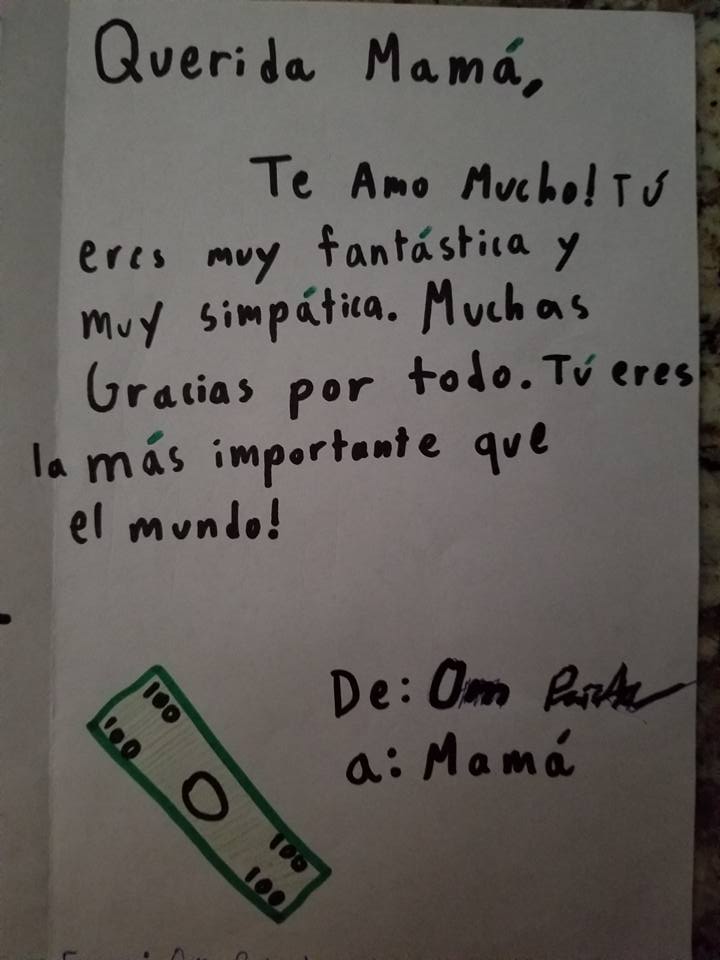 Querida Mamá,
Te Amo Mucho! Tú
eres muy fantástica y
muy simpática. Muchas
Gracias por todo. Tú eres
la más importante que
el mundo!
De: Om
a: Mamá
100
100
O
100
100